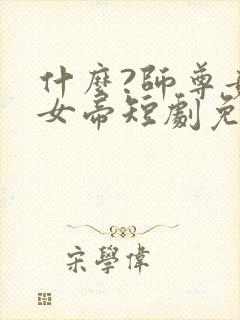 什麼?師尊
女帝短劇免
宋學偉